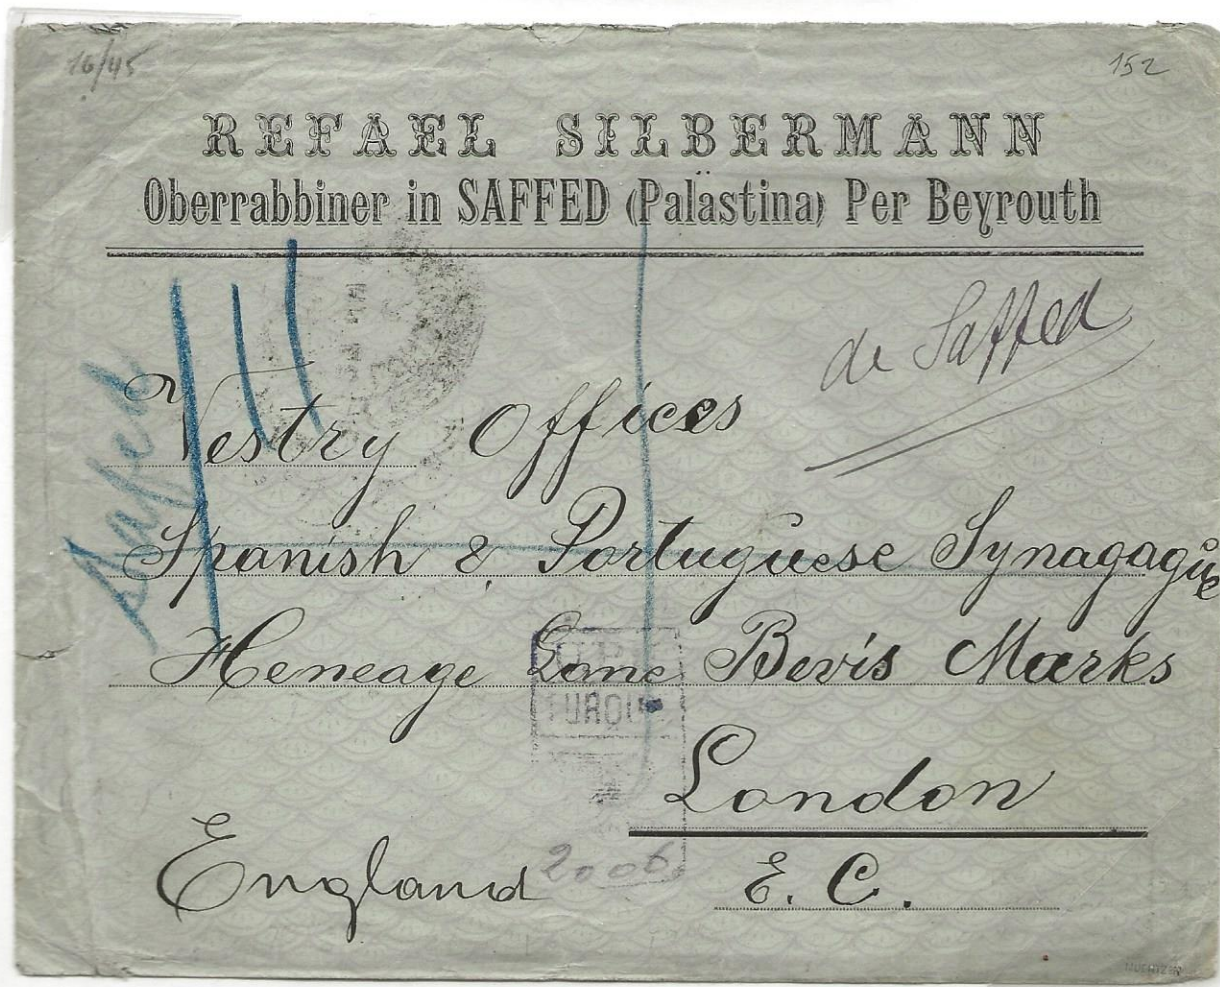 16/45
152
REFAEL SILBERMANN
Oberrabbiner in SAFFED (Palästina) Per Beyrouth
de Saffed
Saffed
Vestry Offices
Spanish & Portuguese Synagague
Heneage Lane Bevis Marks
TURQUIE
London
England
2006
E. C.